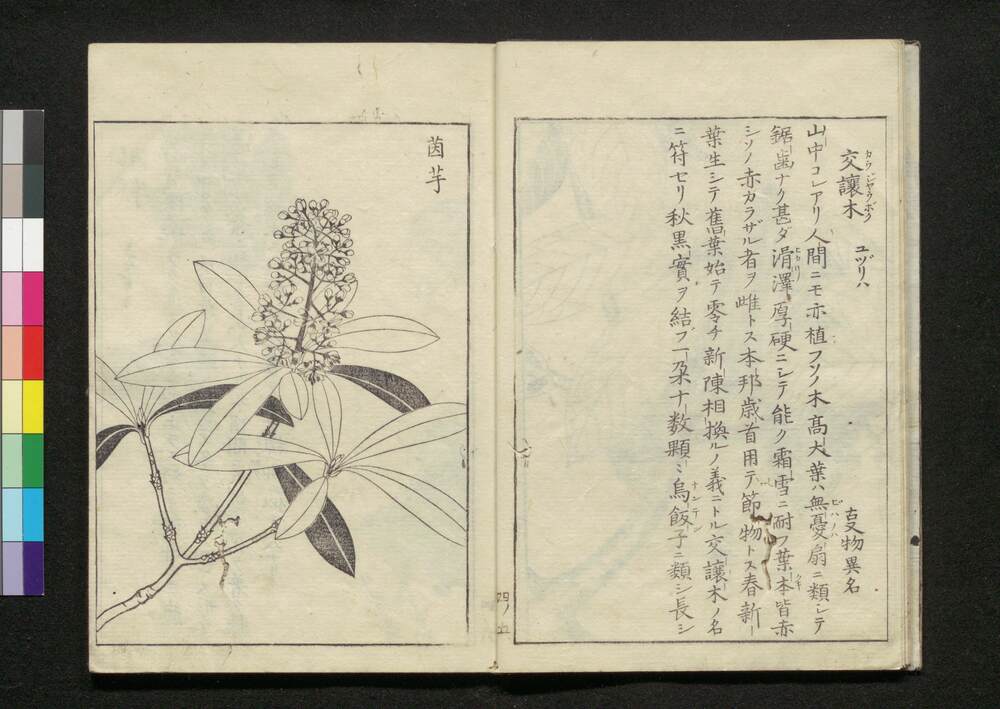 交讓木 ユヅリハ 古夊物異名
カウジヤウボク
山中コレアリ人間ニモ亦植フソノ木髙大葉ハ無憂扇ニ類シテ
ビハノハ
鋸歯ナク甚ダ滑澤厚硬ニシテ能ク霜雪ニ耐フ葉本皆赤
シソノ赤カラザル者ヲ雌トス本邦歳首用テ節物トス春新
葉生シテ舊葉始テ零チ新陳相換ルノ義ニトル交讓木ノ名
ニ符セリ秋黒實ヲ結ブ一朶ナ数顆ミ烏飯子ニ類シ長シ
ナンテン
茵芋